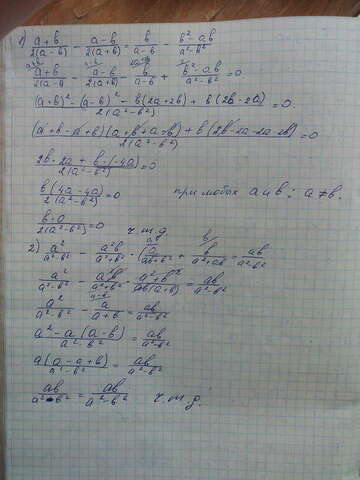 1) (a+b)/(2(a-b)) - (a-b)/(2(a+b)) = b/(a-b) - (b²-ab)/(a²-b²)
(a+b)/(2(a-b)) - (a-b)/(2(a+b)) - b/(a-b) + (b²-ab)/(a²-b²) = 0
((a+b)² - (a-b)² - b(2a+2b) + b(2b-2a))/(2(a²-b²)) = 0.
((a+b-a+b)(a+b+a-b) + b(2b-2a-2a-2b))/(2(a²-b²)) = 0
(2b·2a + b·(-4a))/(2(a²-b²)) = 0
b(4a-4a)/(2(a²-b²)) = 0 при любых a и b; a≠b.
b·0/(2(a²-b²)) = 0 ч.т.д.
2) a²/(a²-b²) - a²b/(a²+b²) · (a/(ab+b²) + b/(a²+ab)) = ab/(a²-b²)
a²/(a²-b²) - a²b/(a²+b²) · (a²+b²)/(ab(a+b)) = ab/(a²-b²)
a²/(a²-b²) - a/(a+b) = ab/(a²-b²)
(a²-a(a-b))/(a²-b²) = ab/(a²-b²)
a(a-a+b)/(a²-b²) = ab/(a²-b²)
ab/(a²-b²) = ab/(a²-b²) ч.т.д.